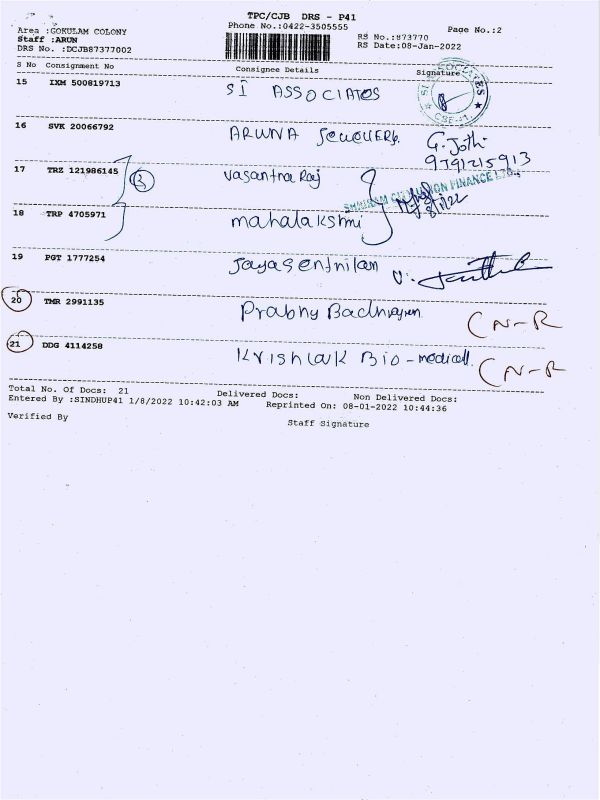 TPC/CJB DRS - P41
Area :GOKULAM COLONY Phone No.:0422-3505555 Page No.:2
Staff :ARUN RS No.:873770
DRS No. :DCJB87377002 RS Date:08-Jan-2022
S No Consignment No Consignee Details Signature
15 IXM 500819713 SI ASSOCIATES
16 SVK 20066792 ARUNA G. Jothi
9791215913
17 TRZ 121986145 Vasantna Raj
18 TRP 4705971 mahalakshmi
19 PGT 1777254 Jayasentnilan
20 TMR 2991135 Prabhu CN-R
21 DDG 4114258 Krishlak Bio-medicall. CN-R
Total No. Of Docs: 21 Delivered Docs: Non Delivered Docs:
Entered By :SINDHUP41 1/8/2022 10:42:03 AM Reprinted On: 08-01-2022 10:44:36
Verified By Staff Signature